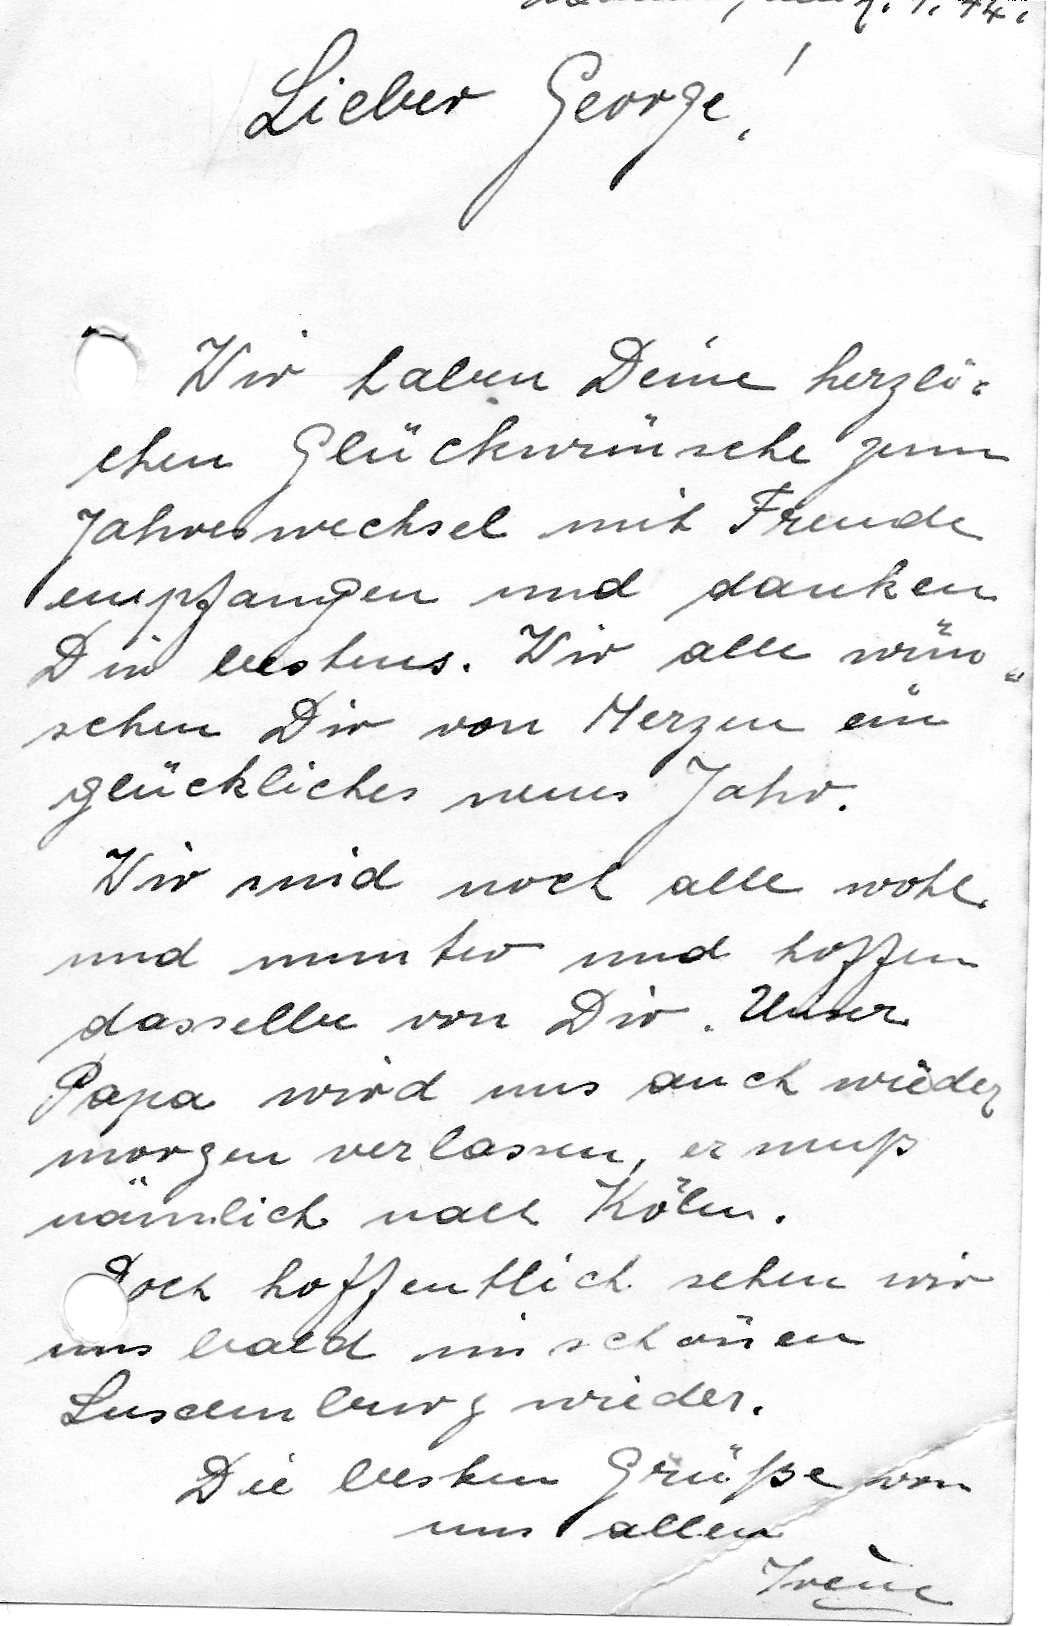 1. 44.
Lieber George!
Wir haben Deine herzli-
chen Glückwünsche zum
Jahreswechsel mit Freude
empfangen und danken
Dir bestens. Wir alle wün-
schen Dir von Herzen ein
glückliches neues Jahr.
Wir sind noch alle wohl
und munter und hoffen
dasselbe von Dir. Unser
Papa wird uns auch wieder
morgen verlassen, er muß
nämlich nach Köln.
Doch hoffentlich sehen wir
uns bald im schönen
Luxemburg wieder.
Die besten Grüße von
uns allen
Irène